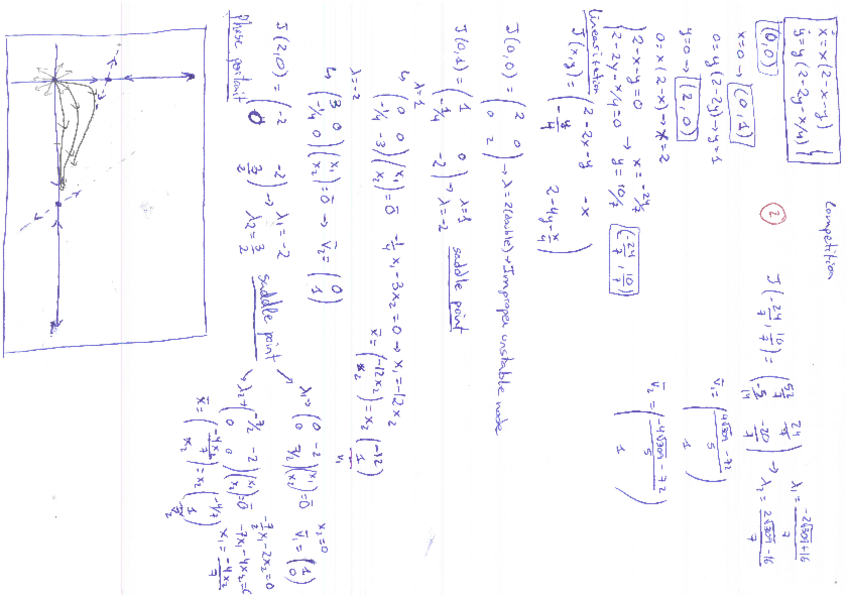 Competition
②
ẋ = x(2-x-y)
ẏ = y(2-2y-x/4)
(0,0)
x=0 → (0,1)
0=y(2-2y) → y=1
y=0 → (2,0)
0=x(2-x) → x=2
{2-x-y=0
{2-2y-x/4=0 → x = -24/7
y = 10/7
(-24/7, 10/7)
J(x,y) = (2-2x-y -x
-y/4 2-4y-x/4)
J(0,0) = (2 0
0 2) → λ=2(double) → Improper unstable node
J(0,1) = (1 0
-1/4 -2) → λ=1
λ=-2 saddle point
λ=1
↳ (0 0
-1/4 -3)(x₁
x₂) = 0̄ -1/4 x₁ - 3x₂ = 0 → x₁ = -12x₂
x̄ = (-12x₂
x₂) = x₂(-12
1)
v₁
λ=-2
↳ (3 0
-1/4 0)(x₁
x₂) = 0̄ → v̄₂ = (0
1)
J(2,0) = (-2 -2
0 3/2) → λ₁ = -2
λ₂ = 3/2 saddle point
λ₁→ (0 -2
0 7/2)(x₁
x₂) = 0̄ x₂=0
v̄₁ = (1
0)
λ₂→ (-7/2 -2
0 0)(x₁
x₂) = 0̄ -7/2 x₁ - 2x₂ = 0
-7x₁ - 4x₂ = 0
x₁ = -4x₂/7
x̄ = (-4x₂/7
x₂) = x₂(-4/7
1)
Phase portrait
J(-24/7, 10/7) = (24/7
-5/14 -20/7) → λ₁ = -2√301+16/7
λ₂ = 2√301-16/7
v̄₁ = (4√301-72/5
1)
v̄₂ = (-4√301-72/5
1)